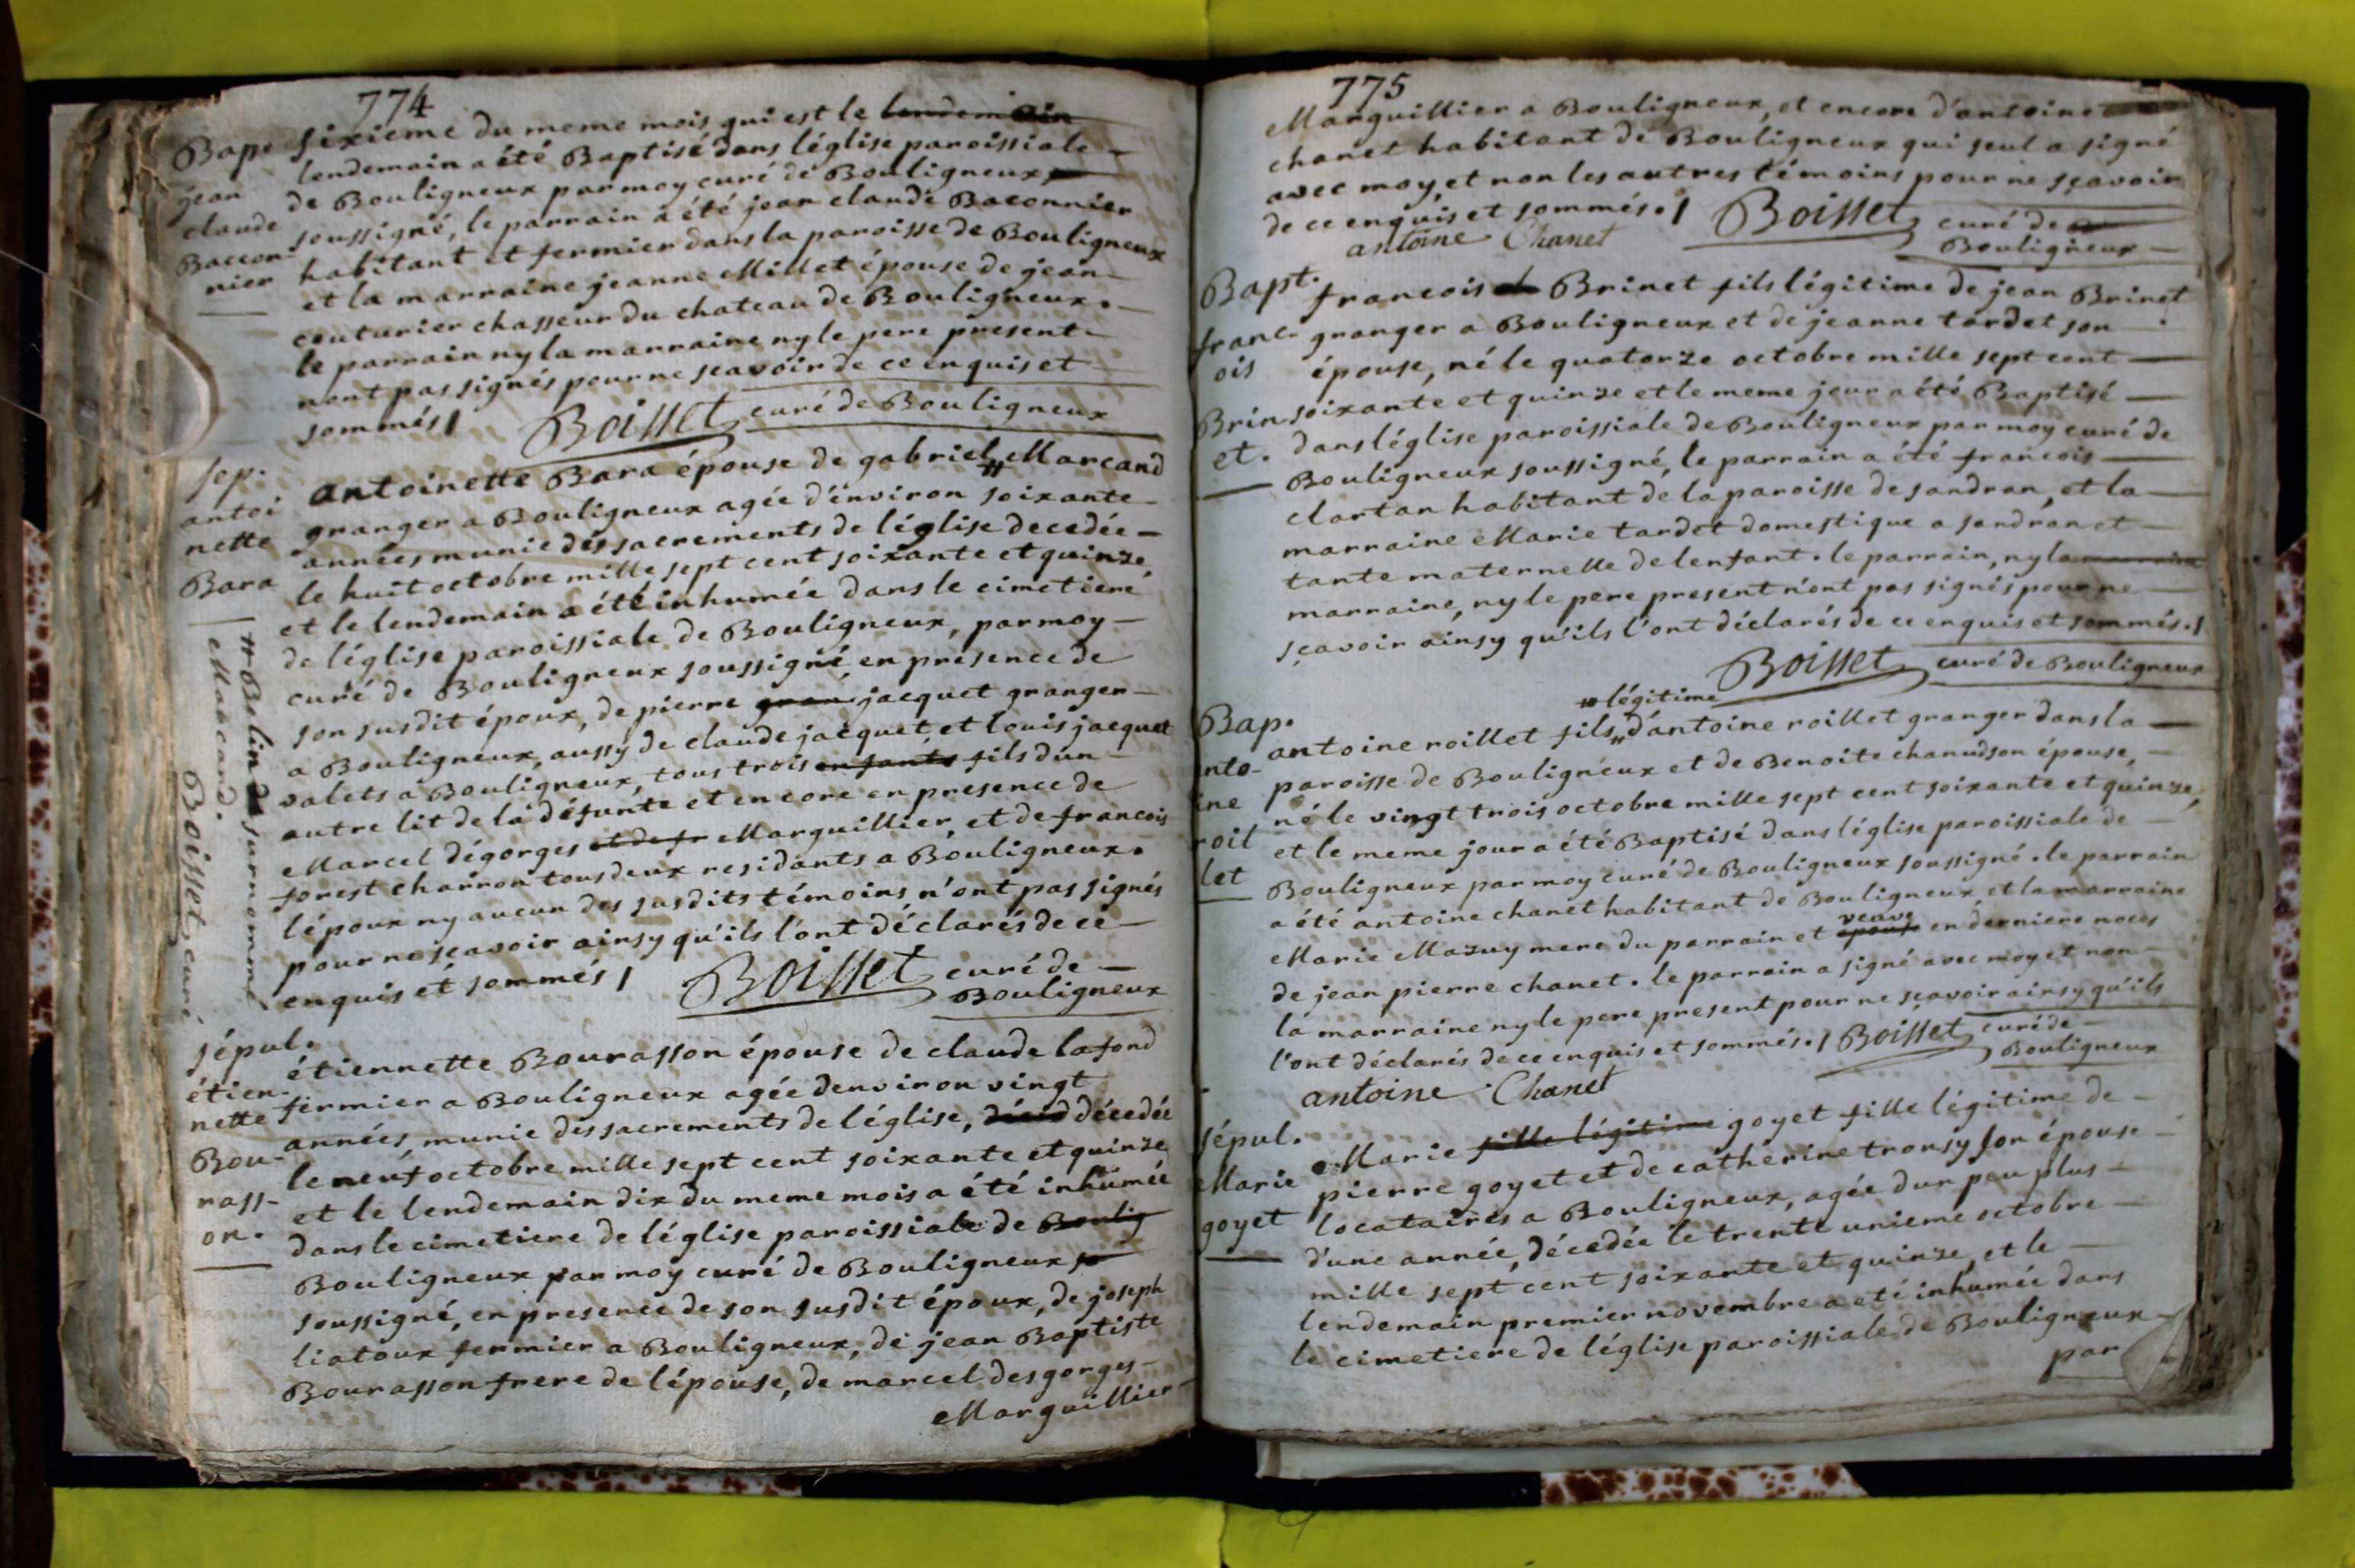 774
Bap. sixieme du meme mois qui est le lendemain
lendemain a été Baptisé dans léglise paroissiale
jean
de Bouligneux par moy curé de Bouligneux
claude
soussigné, le parrain a été jean claude Baconnier
Baccon-
habitant et fermier dans la paroisse de Bouligneux
nier
et la marraine jeanne Millet épouse de jean
couturier chasseur du chateau de Bouligneux.
le parrain ny la marraine ny le pere present
nont pas signés pour ne scavoir de ce enquis et
sommés Boisset curé de Bouligneux
sep.
antoi
nette
Bara
antoinette Bara épouse de gabriel Marcand
granger a Bouligneux agée d'environ soixante
années munie des sacrements de léglise decedée
le huit octobre mille sept cent soixante et quinze,
et le lendemain a été inhumée dans le cimetiere
de léglise paroissiale de Bouligneux, par moy
curé de Bouligneux soussigné en présence de
son susdit époux, de pierre gran jacquet granger
a Bouligneux, aussy de claude jacquet, et louis jacquet
valets a Bouligneux, tous trois enfants fils d'un
autre lit de la défunte et encore en presence de
Marcel dégorges et de fr Marguillier, et de francois
forest charron tous deux residants a Bouligneux.
lépoux ny aucun des susdits témoins n'ont pas signés
pour ne scavoir ainsy qu'ils l'ont déclarés de ce
enquis et sommés Boisset curé de
Bouligneux
Belin surnommé
Marcand.
Boisset curé
sépul.
étien-
nette
Bou-
rass-
on.
étiennette Bourasson épouse de claude lafond
fermier a Bouligneux agée denviron vingt
années, munie des sacrements de léglise, décédée
le neuf octobre mille sept cent soixante et quinze
et le lendemain dix du meme mois a été inhumée
dans le cimetiere de léglise paroissiale de Boulig
Bouligneux par moy curé de Bouligneux
soussigné, en presence de son susdit époux, de joseph
liatoux fermier a Bouligneux, de jean Baptiste
Bourasson frere de lépouse, de marcel desgorges
Marguillier
775
Marguillier a Bouligneux, et encore d'antoine
chanet habitant de Bouligneux qui seul a signé
avec moy, et non les autres témoins pour ne sçavoir
de ce enquis et sommés. Boisset curé de
Bouligneux
antoine Chanet
Bapt.
franc-
ois
Brin
et.
francois Brinet fils légitime de jean Brinet
granger a Bouligneux et de jeanne tardet son
épouse, né le quatorze octobre mille sept cent
soixante et quinze et le meme jour a été Baptisé
dans léglise paroissiale de Bouligneux par moy curé de
Bouligneux soussigné, le parrain a été francois
clartan habitant de la paroisse de sandran, et la
marraine Marie tardet domestique a sandran et
tante maternelle de lenfant. le parrain, ny la marraine
marraine, ny le pere present n'ont pas signés pour ne
sçavoir ainsy qu'ils l'ont déclarés de ce enquis et sommés.
Boisset curé de Bouligneux
Bap.
anto-
ine
roil
let
légitime
antoine roillet fils d'antoine roillet granger dans la
paroisse de Bouligneux et de Benoite chanudson épouse,
né le vingt trois octobre mille sept cent soixante et quinze,
et le meme jour a été Baptisé dans léglise paroissiale de
Bouligneux par moy curé de Bouligneux soussigné. le parrain
a été antoine chanet habitant de Bouligneux, et la marraine
veuve
Marie Mazuy mere du parrain et épouse en derniere noces
de jean pierre chanet. le parrain a signé avec moy et non
la marraine ny le pere present pour ne sçavoir ainsy qu'ils
l'ont déclarés de ce enquis et sommés. Boisset curé de
Bouligneux
antoine Chanet
sépul.
Marie
goyet
Marie fille légitime goyet fille légitime de
pierre goyet et de catherine tronsy son épouse
locataires a Bouligneux, agée d'un peu plus
d'une année, décédée le trente unieme octobre
mille sept cent soixante et quinze, et le
lendemain premier novembre a eté inhumée dans
le cimetiere de léglise paroissiale de Bouligneux
par